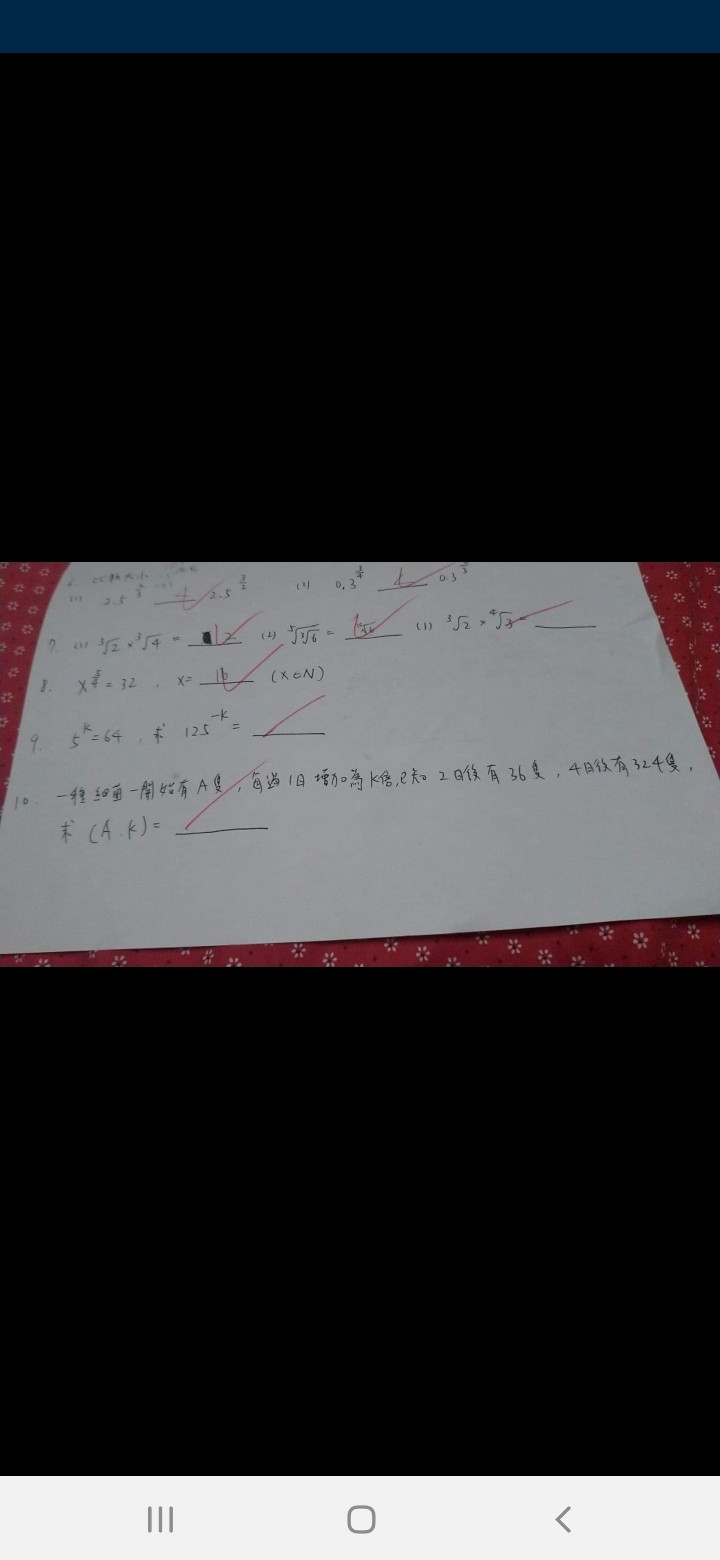 6. 比較大小
(1) 2.5 < 2.5^{3/2} (2) 0.3^{3/4} 0.3
7. (1) ³√2 × ³√4 = 2 (2) ⁵√³√6 = ¹⁵√6 (3) ³√2 × ⁴√3 = ____
8. x^{5/4} = 32 , x = 16 (x∈N)
9. 5^k = 64 , 求 125^{-k} = ____
10. 一種細菌一開始有A隻,每過1日增加為k倍,已知2日後有36隻,4日後有324隻,
求 (A.k) = ____